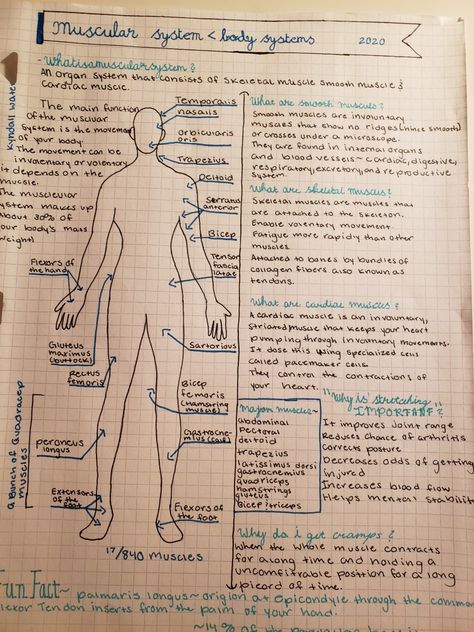 Muscular system < body systems
2020
Kyndall
- What is a muscular system?
An organ system that consists of skeletal muscle smooth muscle &
cardiac muscle.
The main function
of the muscular
system is the movement
of your body.
The movement can be
involentary or volentary
it depends on the
muscle.
The muscluelar
system makes up
about 30% of
our body's mass
weight)
Temporalis
nasalis
orbicularis
oris
Trapezius
Deltoid
Serratus
anterior
Bicep
Tensor
fascia
latae
Sartorious
Bicep
femoris
(hamstring
muscle)
Gastrocne-
mius (calf)
Flexors of
the foot
Flexors of
the hand
Gluteus
maximus
(buttock)
rectus
femoris
A Bunch of Quadracep
muscles
peroneus
longus
Extensors
of the
foot
17/840 muscles
What are smooth muscles?
Smooth muscles are involuntary
muscles that show no ridges (hince smooth)
or crosses under a microscope.
They are found in internal organs
and blood vessels~ cardiac, digestive,
respiratory, excretory, and reproductive
system
What are skeletal muscles?
Skeletal muscles are muscles that
are attached to the skeleton.
Enable voluntary movement.
Fatigue more rapidly than other
muscles
Attached to bones by bundles of
collagen fibers also known as
tendons.
What are cardiac muscles?
A cardiac muscle is an involuntary,
striated muscle that keeps your heart
pumping through involuntary movements.
It dose this using specialized cells
called pacemaker cells
They control the contractions of
your heart.
Major muscles~
abdominal
pectoral
deltoid
trapezius
latissimus dorsi
gastrocnemius
quadriceps
hamstrings
gluteus
Bicep/triceps
"Why is stretching
IMPORTANT?"
It improves Joint range
Reduces chance of arthritis
corrects posture
Decreases odds of getting
injured
Increases blood flow
Helps mental stability
Why do i get cramps?
When the whole muscle contracts
for a long time and holding a
uncomfirable position for a long
picord of time.
Fun Fact~ palmaris longus~ origion at epicondyle through the common
flexor Tendon inserts from the palm of your hand.
~14% of the